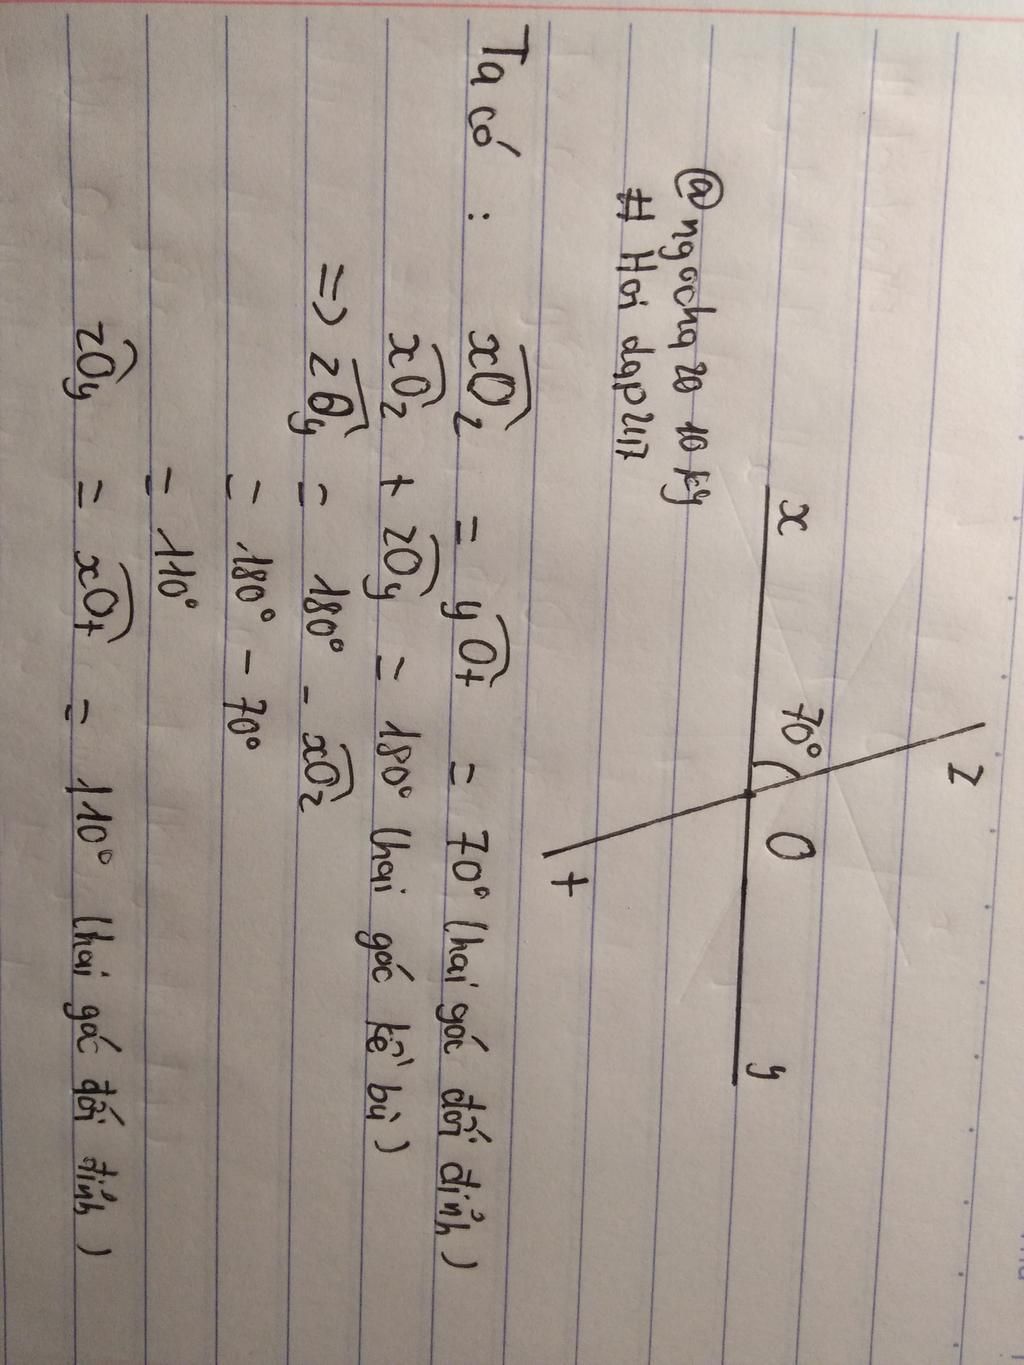 z
x
70°
O
y
t
@ngocha 20 10 ky
# Hoi dap247
Ta có : xOz = yOt = 70° (hai góc đối đỉnh)
xOz + zOy = 180° (hai góc kề bù)
=> zOy = 180° - xOz
= 180° - 70°
= 110°
zOy = xOt = 110° (hai góc đối đỉnh)